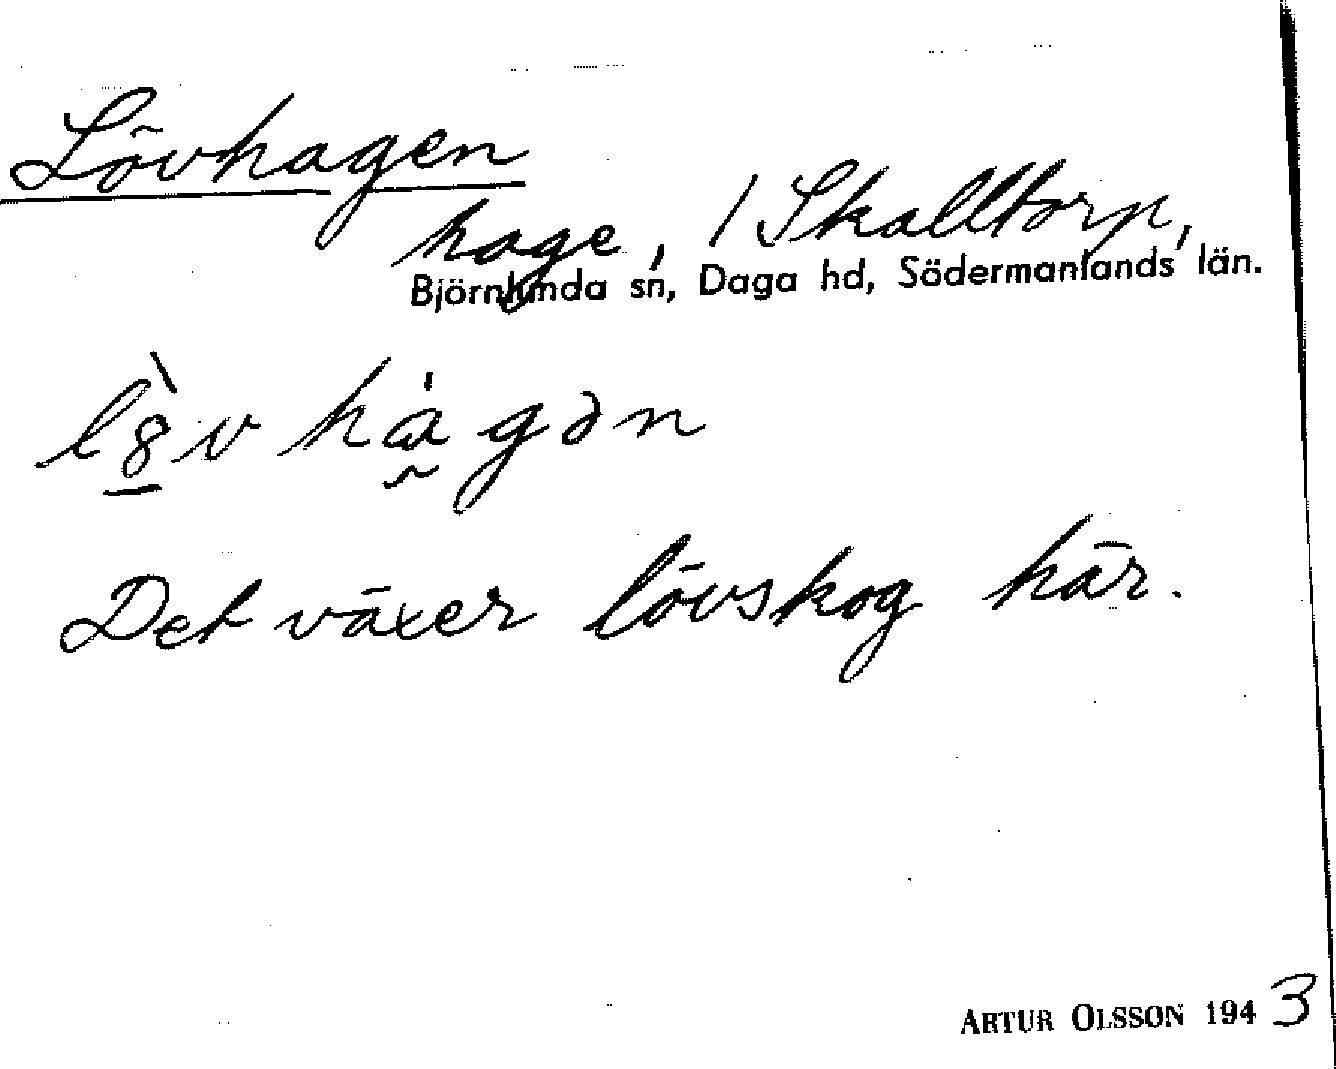 Lövhagen
hage, / Skalltorp,
Björnlunda sn, Daga hd, Södermanlands län.
Det växer lövskog här.
ARTUR OLSSON 1943